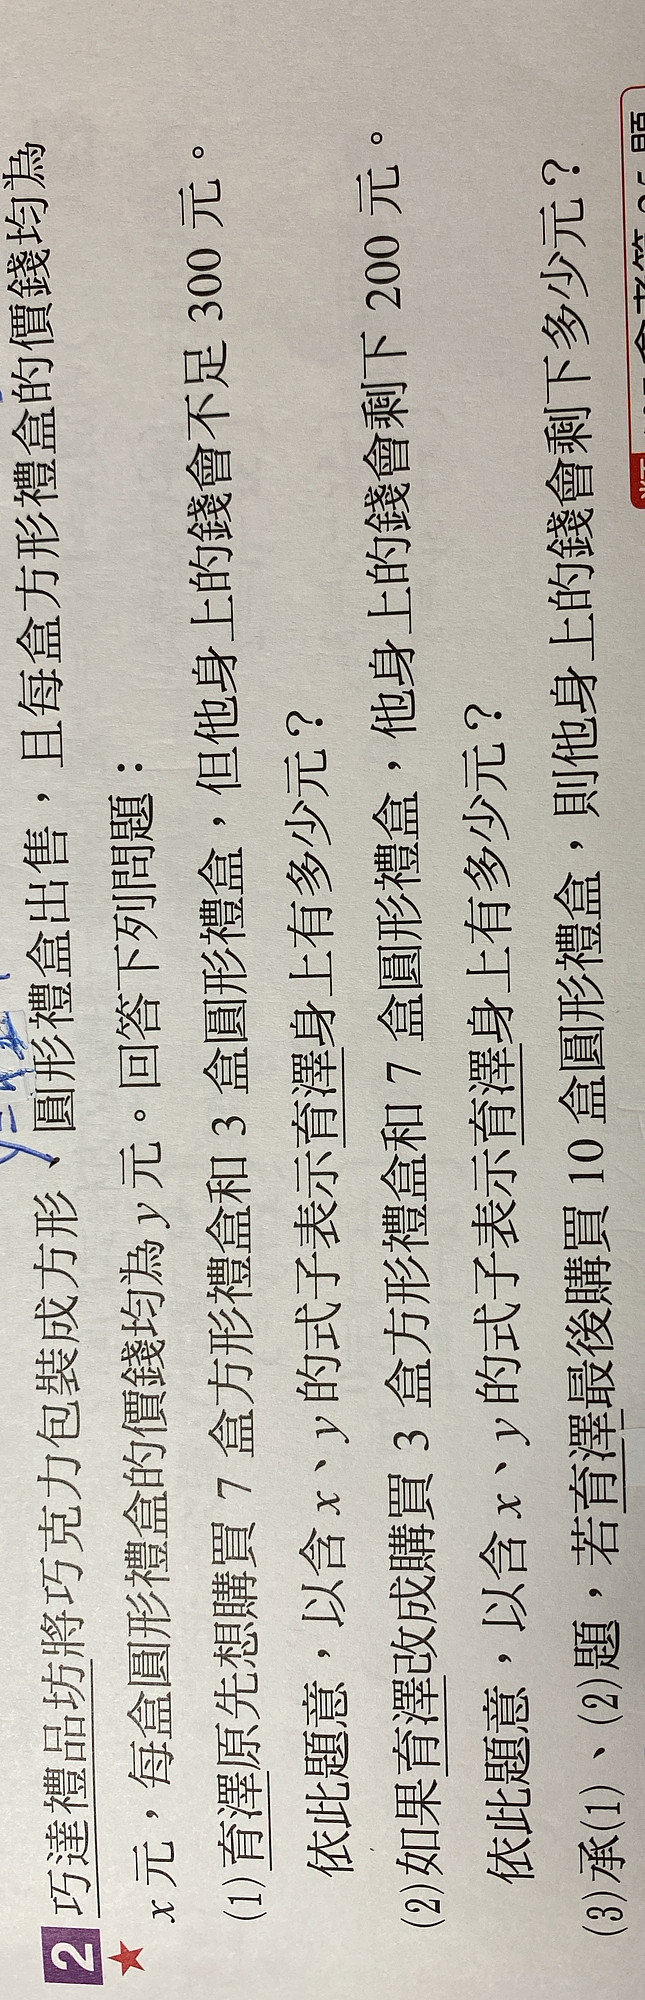 2 巧達禮品坊將巧克力包裝成方形、圓形禮盒出售，且每盒方形禮盒的價錢均為
★ x 元，每盒圓形禮盒的價錢均為 y 元。回答下列問題：
(1)育澤原先想購買 7 盒方形禮盒和 3 盒圓形禮盒，但他身上的錢會不足 300 元。
依此題意，以含 x、y 的式子表示育澤身上有多少元？
(2)如果育澤改成購買 3 盒方形禮盒和 7 盒圓形禮盒，他身上的錢會剩下 200 元。
依此題意，以含 x、y 的式子表示育澤身上有多少元？
(3)承(1)、(2)題，若育澤最後購買 10 盒圓形禮盒，則他身上的錢會剩下多少元？